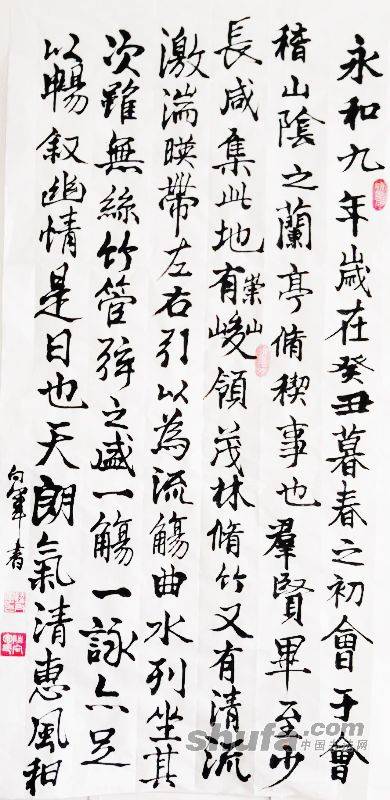 永和九年歲在癸丑暮春之初會于會
稽山陰之蘭亭脩稧事也羣賢畢至少
長咸集此地有崇山峻領茂林脩竹又有清流
激湍暎帶左右引以為流觴曲水列坐其
次雖無絲竹管弦之盛一觴一詠亦足
以暢叙幽情是日也天朗氣清惠風和
向 書
shufa.com
中国书法网